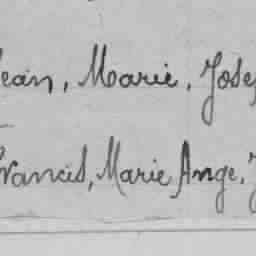 Jean, Marie, Josep
Francis, Marie Ange, J